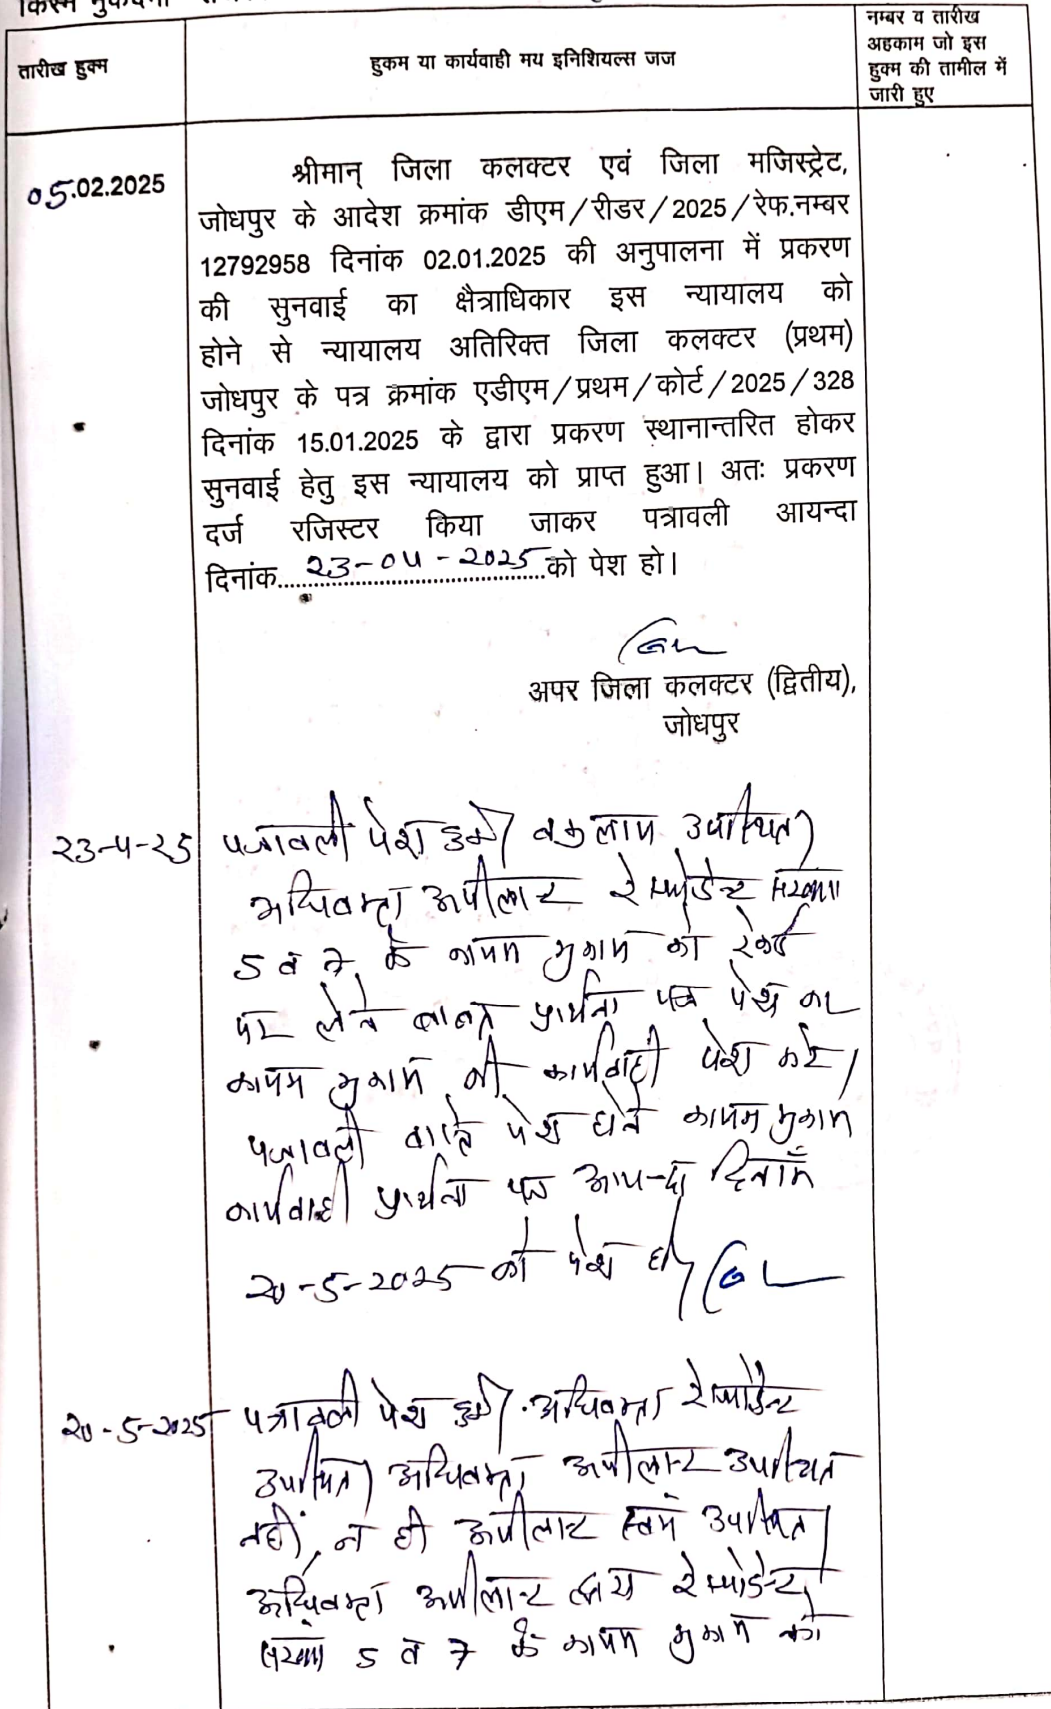 किस्म मुकदमा
तारीख हुक्म
हुकम या कार्यवाही मय इनिशियल्स जज
नम्बर व तारीख
अहकाम जो इस
हुक्म की तामील में
जारी हुए
05.02.2025
श्रीमान् जिला कलक्टर एवं जिला मजिस्ट्रेट,
जोधपुर के आदेश क्रमांक डीएम/रीडर/2025/रेफ.नम्बर
12792958 दिनांक 02.01.2025 की अनुपालना में प्रकरण
की सुनवाई का क्षैत्राधिकार इस न्यायालय को
होने से न्यायालय अतिरिक्त जिला कलक्टर (प्रथम)
जोधपुर के पत्र क्रमांक एडीएम/प्रथम/कोर्ट/2025/328
दिनांक 15.01.2025 के द्वारा प्रकरण स्थानान्तरित होकर
सुनवाई हेतु इस न्यायालय को प्राप्त हुआ। अतः प्रकरण
दर्ज रजिस्टर किया जाकर पत्रावली आयन्दा
दिनांक....23-04-2025....को पेश हो।
अपर जिला कलक्टर (द्वितीय),
जोधपुर
23-4-25 पत्रावली पेश हुई। वकुलाय उपस्थित।
अधिवक्ता अपीलांट रेस्पोडेन्ट संख्या
5 व 7 के कायम मुकाम को रेकर्ड
पर लेने बाबत प्रार्थना पत्र पेश कर
कायम मुकाम की कार्यवाही पेश करे।
पत्रावली वास्ते पेश होने कायम मुकाम
कार्यवाही प्रार्थना पत्र आयन्दा दिनांक
20-5-2025 को पेश हो।
20-5-2025 पत्रावली पेश हुई। अधिवक्ता रेस्पोडेन्ट
उपस्थित। अधिवक्ता अपीलान्ट उपस्थित
नहीं, न ही अपीलांट स्वयं उपस्थित।
अधिवक्ता अपीलान्ट द्वारा रेस्पोडेन्ट
संख्या 5 व 7 के कायम मुकाम को